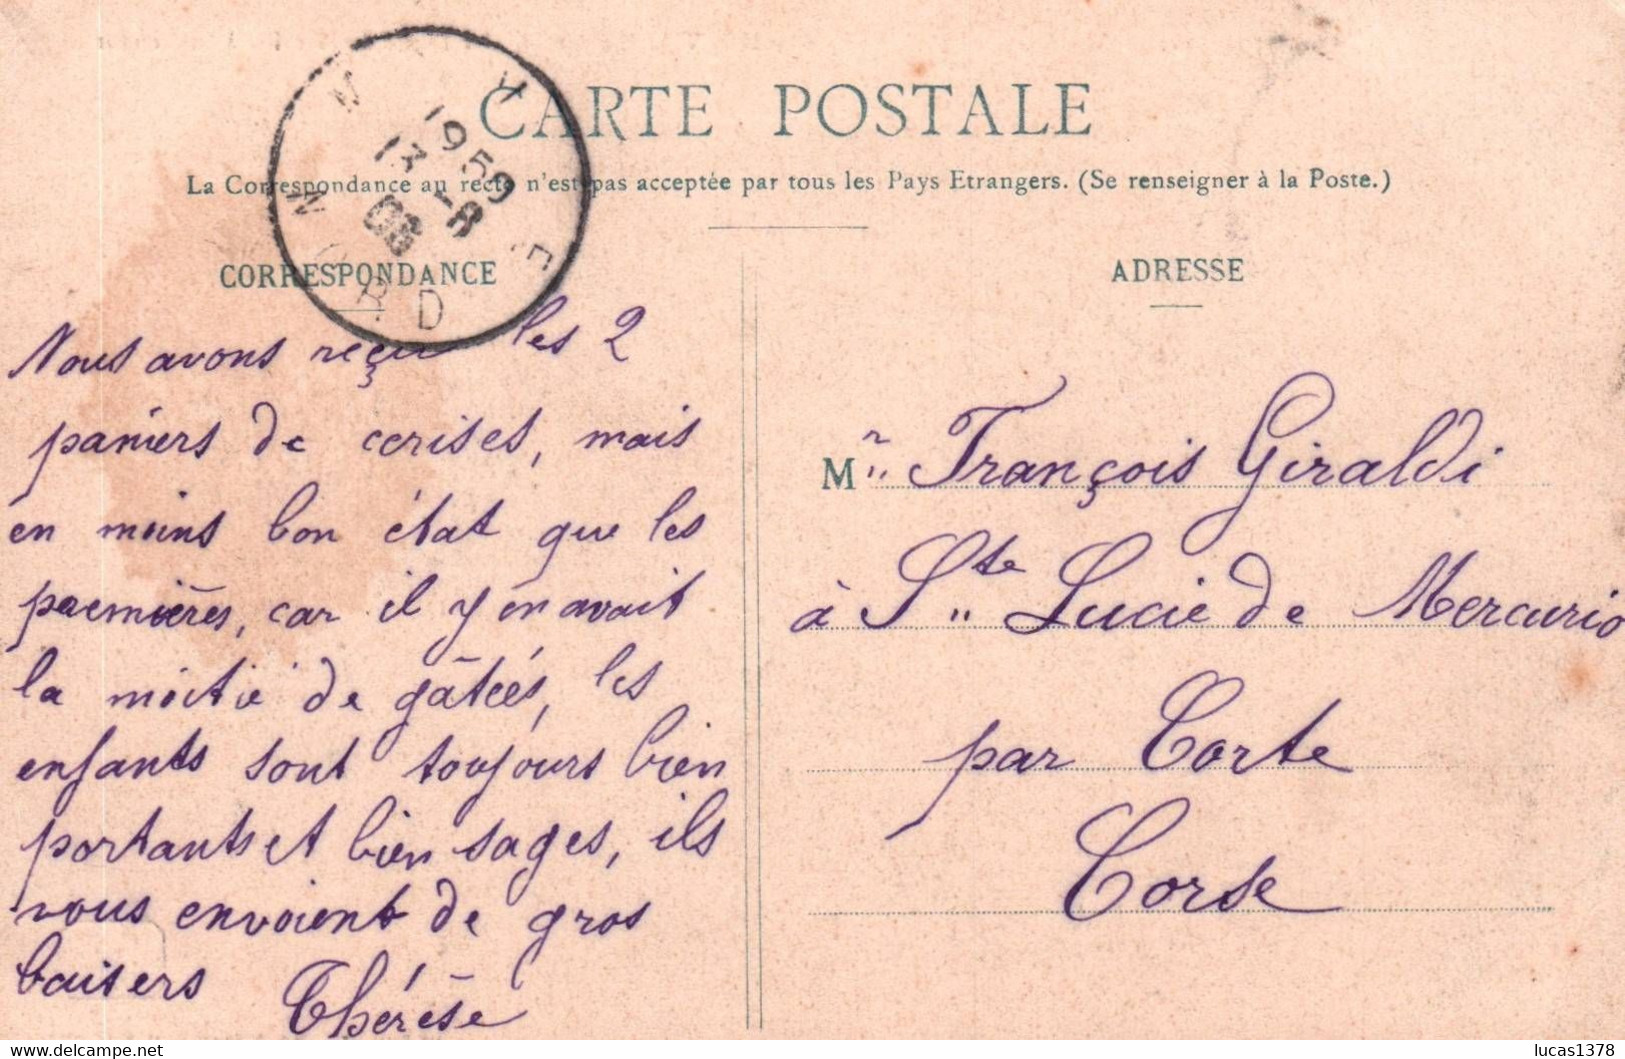 CARTE POSTALE
La Correspondance au recto n'est pas acceptée par tous les Pays Etrangers. (Se renseigner à la Poste.)
1959
13 -8
08
CORRESPONDANCE
Nous avons reçu les 2
paniers de cerises, mais
en moins bon état que les
premières, car il y en avait
la moitié de gâtées, les
enfants sont toujours bien
portants et bien sages, ils
vous envoient de gros
baisers Thérèse
ADRESSE
Mr François Giraldi
à Ste Lucie de Mercurio
par Corte
Corse
lucas1378
www.delcampe.net